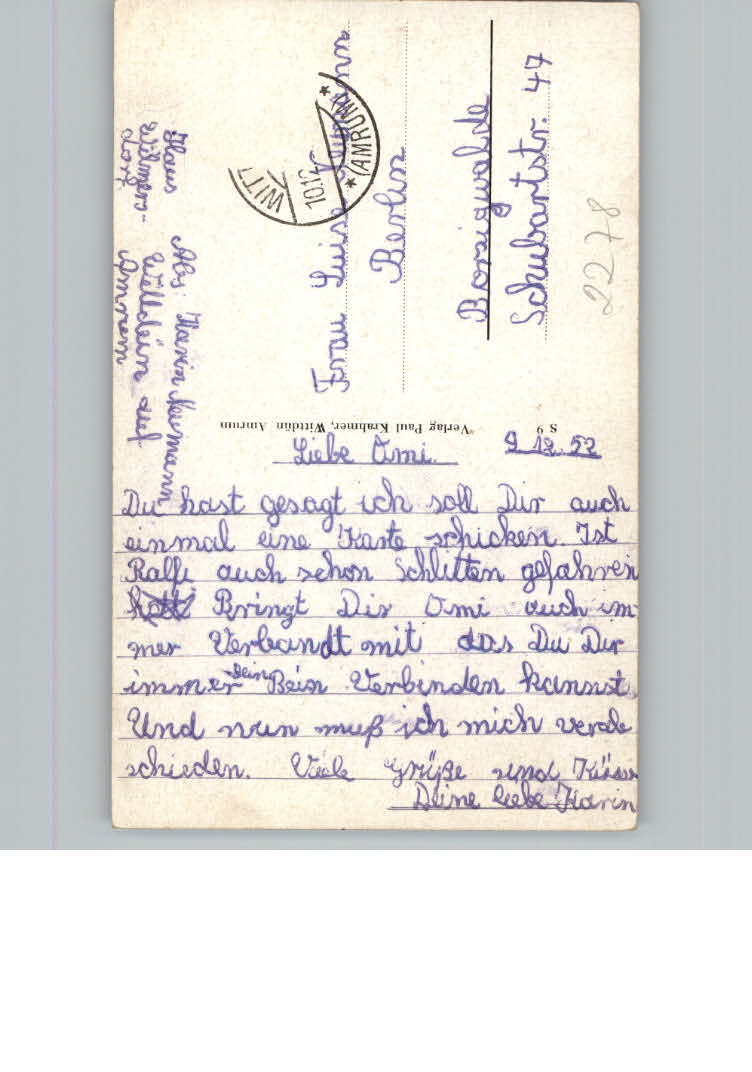 Liebe Omi.
9.12.52
Du hast gesagt ich soll Dir auch
einmal eine Karte schicken. Ist
Ralfi auch schon Schlitten gefahren
hatt Bringt Dir Omi auch im-
mer Verbandt mit das Du Dir
immer Dein Bein Verbinden kannst.
Und nun muß ich mich verab
schieden. Viele Grüße und Küsse
Deine liebe Karin
Abs: Karin Neumann
Wittdün auf
Amrum
Haus
Wilmers-
dorf
Frau Luise Neumann
Berlin
Borsigwalde
Schubartstr. 47
2278
WITT
10.12
*(AMRUM)*
Verlag Paul Krahmer, Wittdün Amrum
S 9